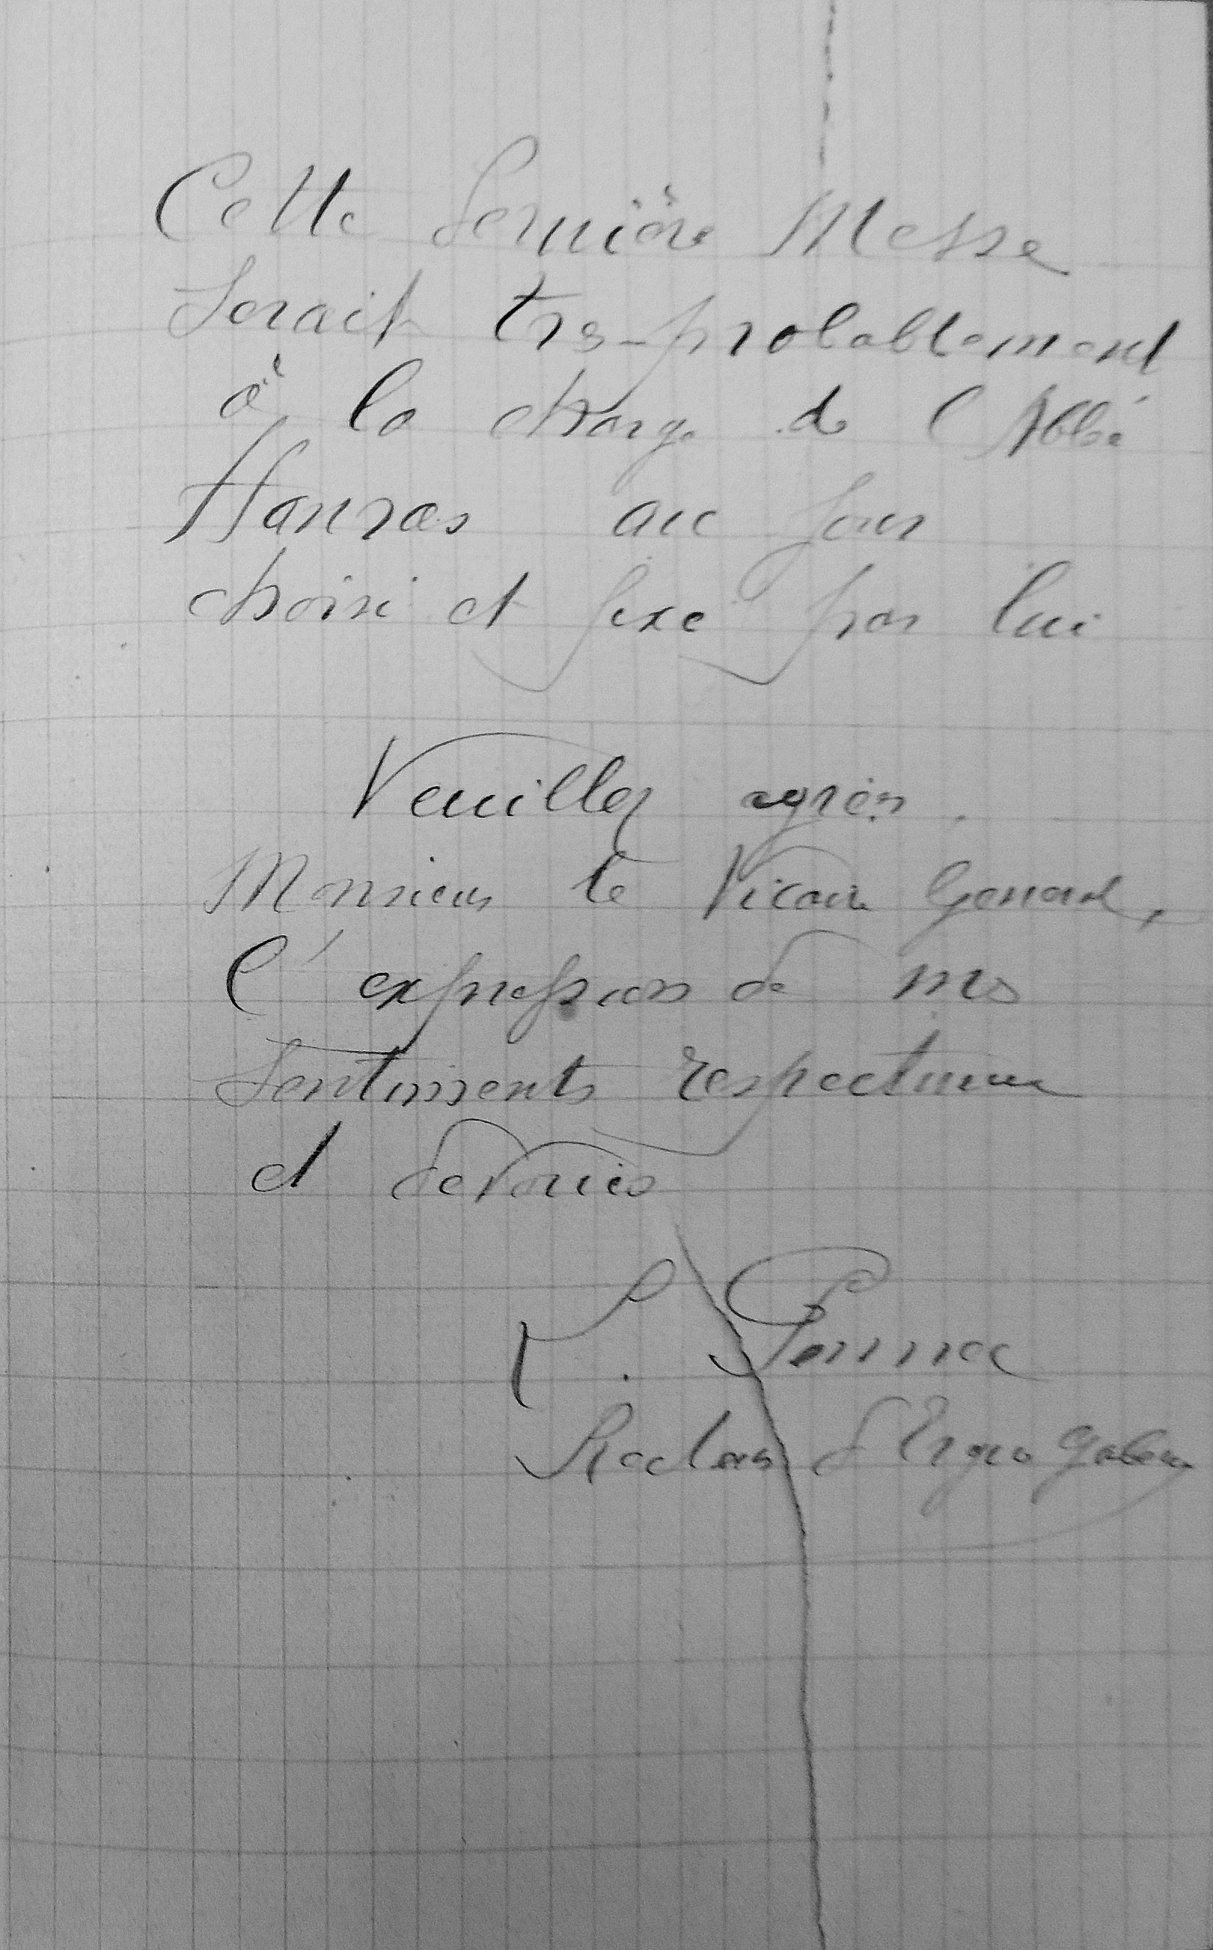 Cette dernière Messe
serait très-probablement
à la charge de l'Abbé
au jour
choisi et fixé par lui
Veuillez agréer,
Monsieur le Vicaire Général,
l'expression de mes
sentiments respectueux
et dévoués
L. Pennec
Recteur d'Ergué Gabéric